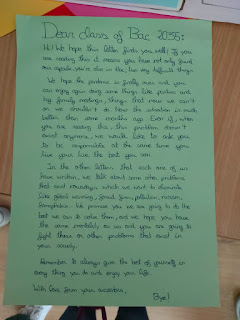 Dear class of Bac 2035:
Hi! We hope this letter finds you well! If you
are reading this it means you have not only found
our capsule, you're also in Bac, two very difficult things.
We hope the pandemic is finally over and you
can enjoy again doing some things like parties and
big family meetings, things that now we can't
or we shouldn't do. Now the situation is much
better than some months ago. Even if, when
you are reading this, this problem doesn't
exist anymore, we would like to ask you
to be responsible at the same time you
live your live the best you can.
In the other letters that each one of us
have written, we talk about some other problems
that exist nowadays which we wish to diminish
like global warming, plastic, pollution, racism,
homophobia... We promise you we are going to do the
best we can to solve them, and we hope you have
the same mentality as us and you are going to
fight these or other problems that exist in
your society.
Remember to always give the best of yourself in
every thing you do and enjoy your life.
With love from your ancestors,
Bye!